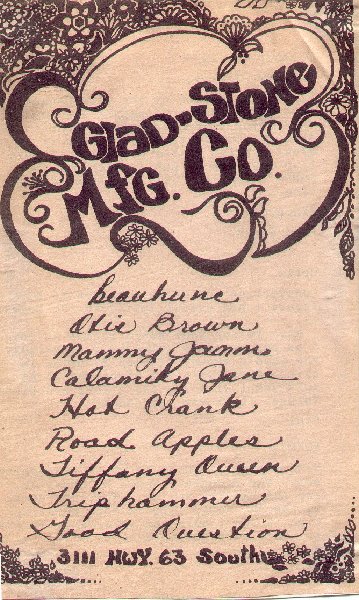 Glad-Stone
Mfg. Co.
Beauhunc
Otie Brown
Mammy Jamm
Calamity Jane
Hot Crank
Road Apples
Tiffany Queen
Triphammer
Good Question
3111 HWY. 63 South